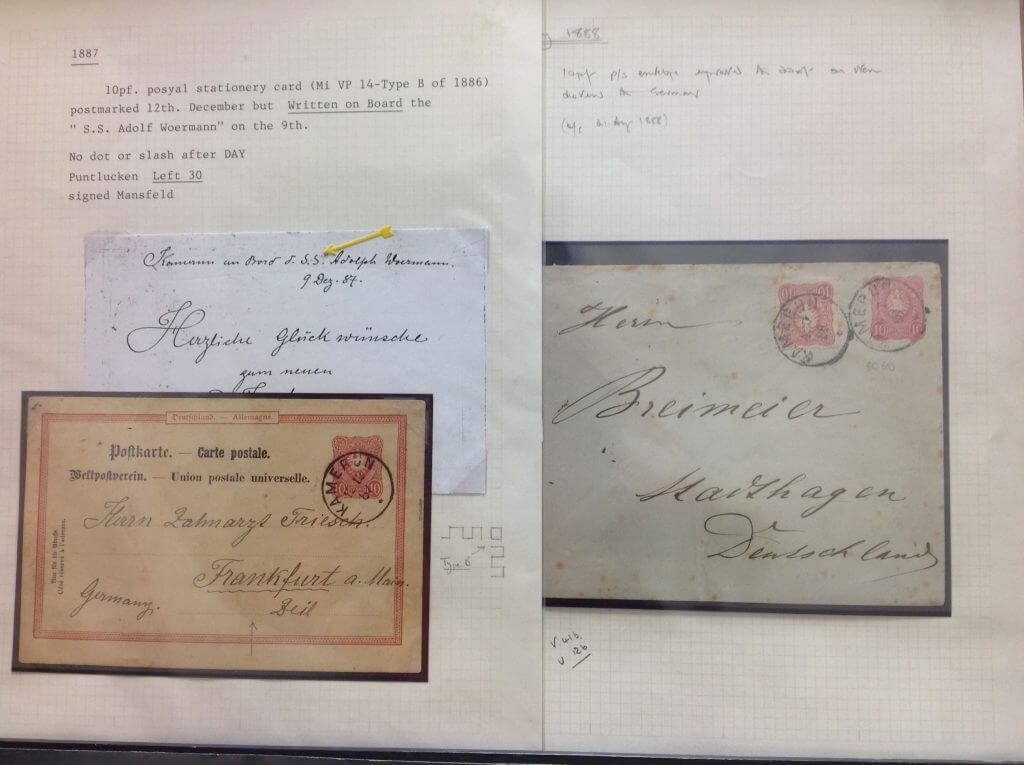 1887
10pf. posyal stationery card (Mi VP 14-Type B of 1886)
postmarked 12th. December but Written on Board the
" S.S. Adolf Woermann" on the 9th.
No dot or slash after DAY
Puntlucken Left 30
signed Mansfeld
Kamerun an Bord d. S.S. Adolph Woermann.
9 Dez. 87.
Herzliche Glückwünsche
zum neuen
Deutschland. — Allemagne.
Postkarte. — Carte postale.
Weltpostverein. — Union postale universelle.
Nur für die Adresse.
Côté réservé à l'adresse.
10 10
KAMERUN
Herrn Zahnarzt Triesch.
Frankfurt a. Main.
Zeil
Germany.
Type B
1888
10pf p/s envelope
Germany
Aug 1888)
10 10
KAMERUN
10 10
KAMERUN
Herrn
Breimeier
Stadthagen
Deutschland
V. 41b.
U 12b